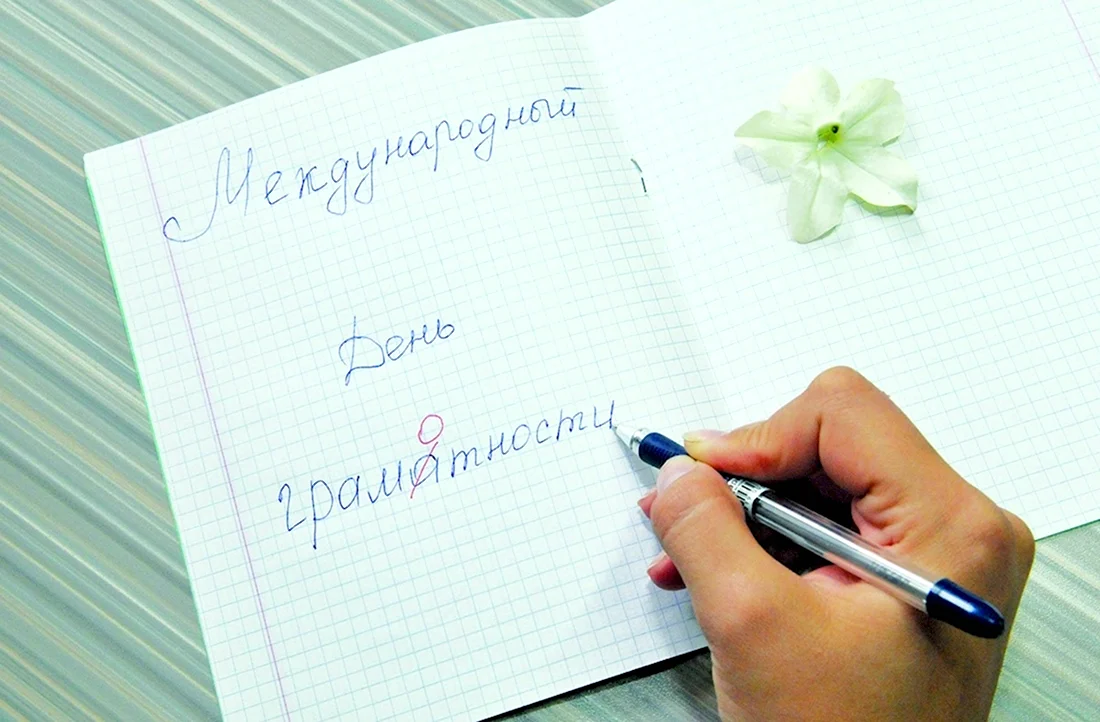 Международный
День
грамотности